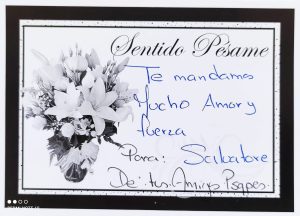 Sentido Pésame
Te mandamos
Mucho Amor y
fuerza
Para: Salvatore
De: tus Amigos